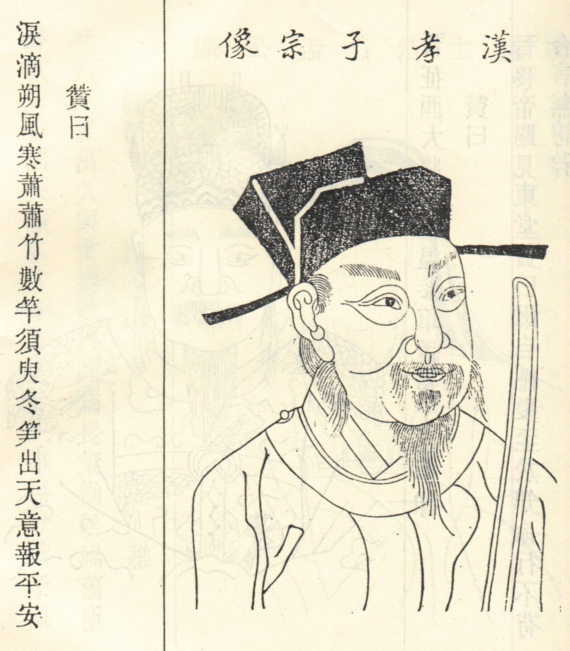 漢孝子宗像
贊曰
淚滴朔風寒蕭蕭竹數竿須臾冬笋出天意報平安